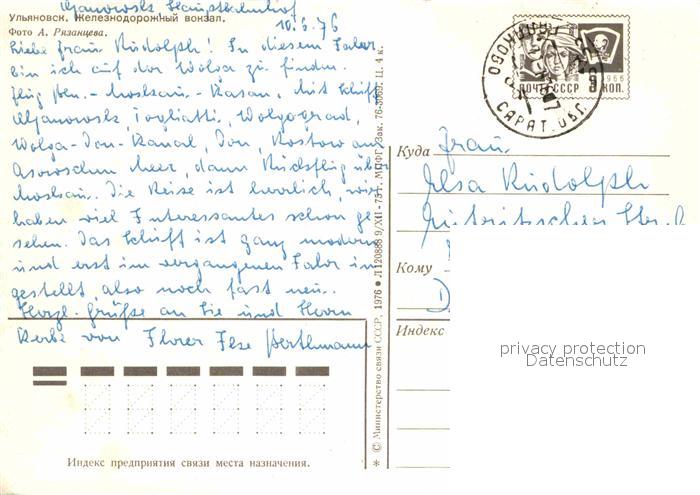 Uljanowsk Hauptbahnhof
Ульяновск. Железнодорожный вокзал.
10.6.76
Фото А. Рязанцева.
Liebe Frau Rudolph! In diesem Jahr
bin ich auf der Wolga zu finden.
Flug Bln.-Moskau-Kasan, mit Schiff
Uljanowsk, Togliatti, Wolgograd,
Wolga-Don-Kanal, Don, Rostow am
Asowschen Meer, dann Rückflug über
Moskau. Die Reise ist herrlich, wir
haben viel Interessantes schon ge-
sehen. Das Schiff ist ganz modern
und erst im vergangenen Jahr in
gestellt, also noch fast neu.
Herzl. Grüße an Sie und Herrn
von Ihrer Ilse Berthmann
Индекс предприятия связи места назначения.
* © Министерство связи СССР, 1976 ● Л 120888 9/XII-75 г. МПФГ. Зак. 76-3069. Ц. 4 к.
ПОЧТА СССР
1966
КОП.
САРАТ. ОБЛ.
Куда
Frau
Elsa Rudolph
Кому
D
Индекс
privacy protection
Datenschutz